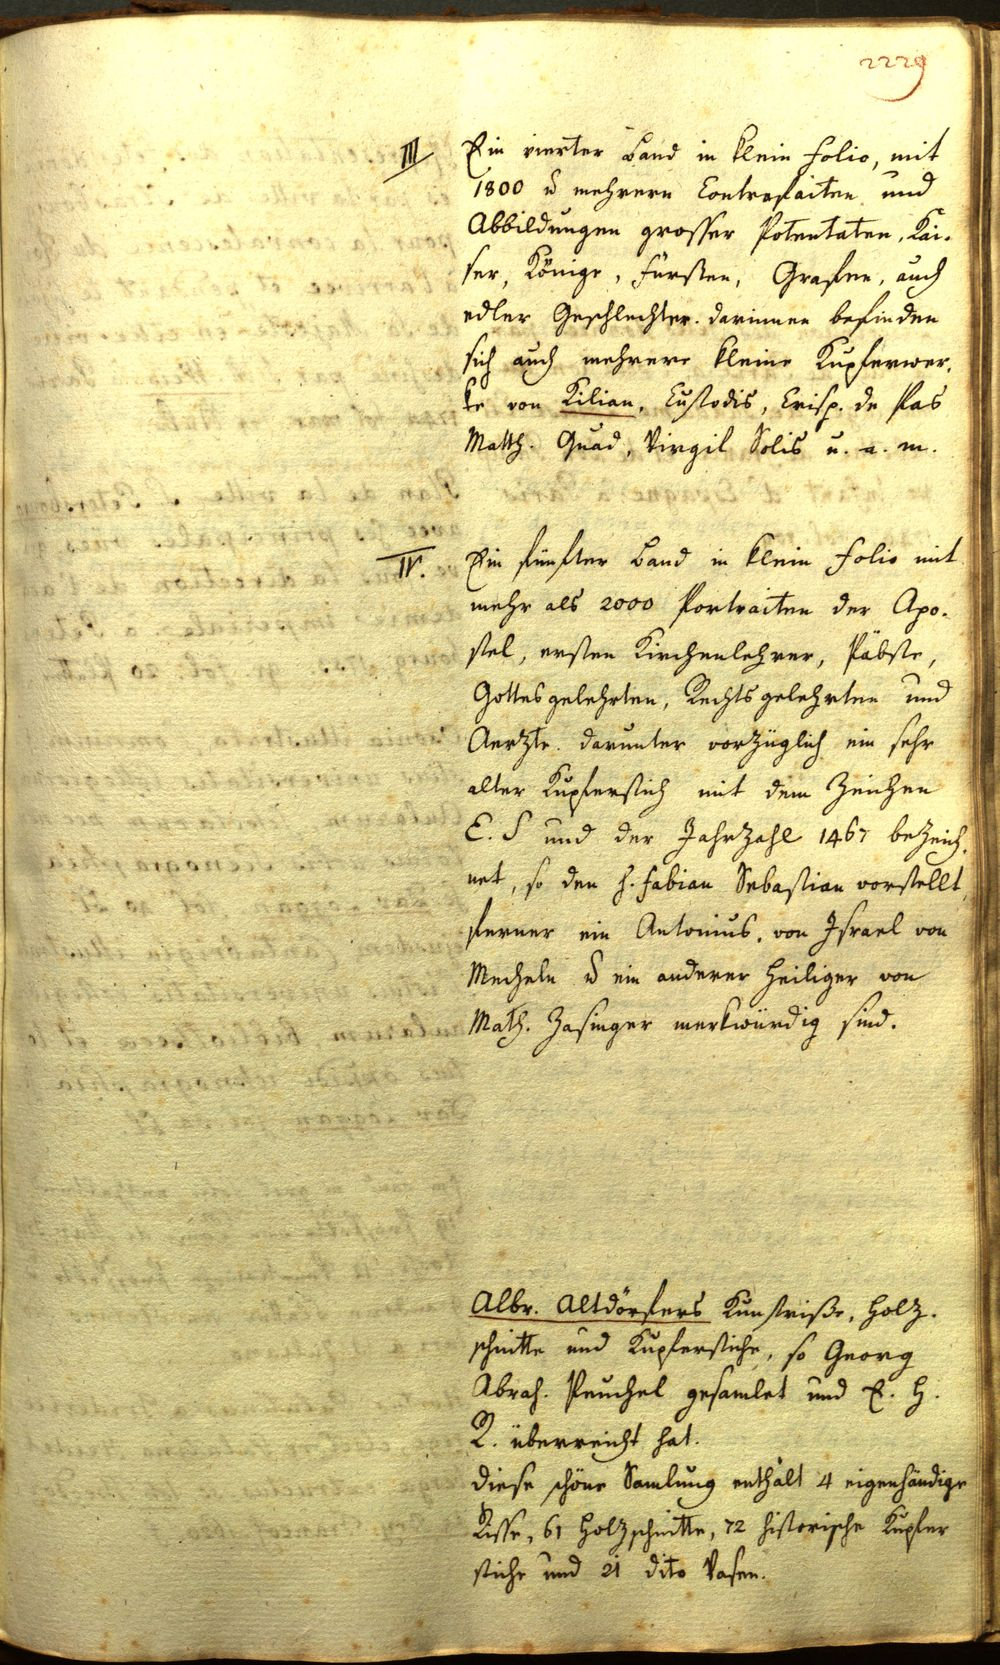 2229
III Ein vierter Band in klein Folio, mit
1800 u mehrern Contrafaiten und
Abbildungen grosser Potentaten, Kai-
ser, Könige, Fürsten, Grafen, auch
edler Geschlechter. darinnen befinden
sich auch mehrere kleine Kupferwer-
ke von Kilian, Custodis, Crisp. de Pas
Matth. Quad, Virgil Solis u. a. m.
IV. Ein fünfter Band in klein Folio mit
mehr als 2000 Portraiten der Apo-
stel, ersten Kirchenlehrer, Päbste,
Gottesgelehrten, Rechtsgelehrten und
Aerzte. darunter vorzüglich ein sehr
alter Kupferstich mit dem Zeichen
E. S und der Jahrzahl 1467 bezeich-
net, so den h. Fabian Sebastian vorstellt,
ferner ein Antonius, von Israel von
Mecheln u ein anderer Heiliger von
Math. Zasinger merkwürdig sind.
Albr. Altdörfers Kunstriße, Holz-
schnitte und Kupferstiche, so Georg
Abrah. Peuchel gesamlet und E. H.
R. überreicht hat.
diese schöne Samlung enthält 4 eigenhändige
Risse, 61 Holzschnitte, 72 historische Kupfer
stiche und 21 dito Vasen.